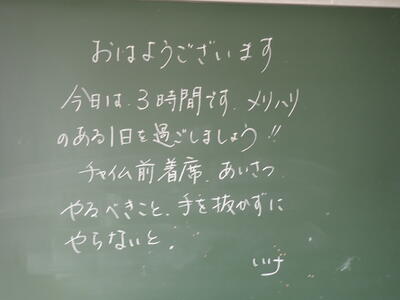 おはようございます
今日は、3時間です。メリハリ
のある1日を過ごしましょう!!
チャイム前着席、あいさつ
やるべきこと、手を抜かずに
やらないと。